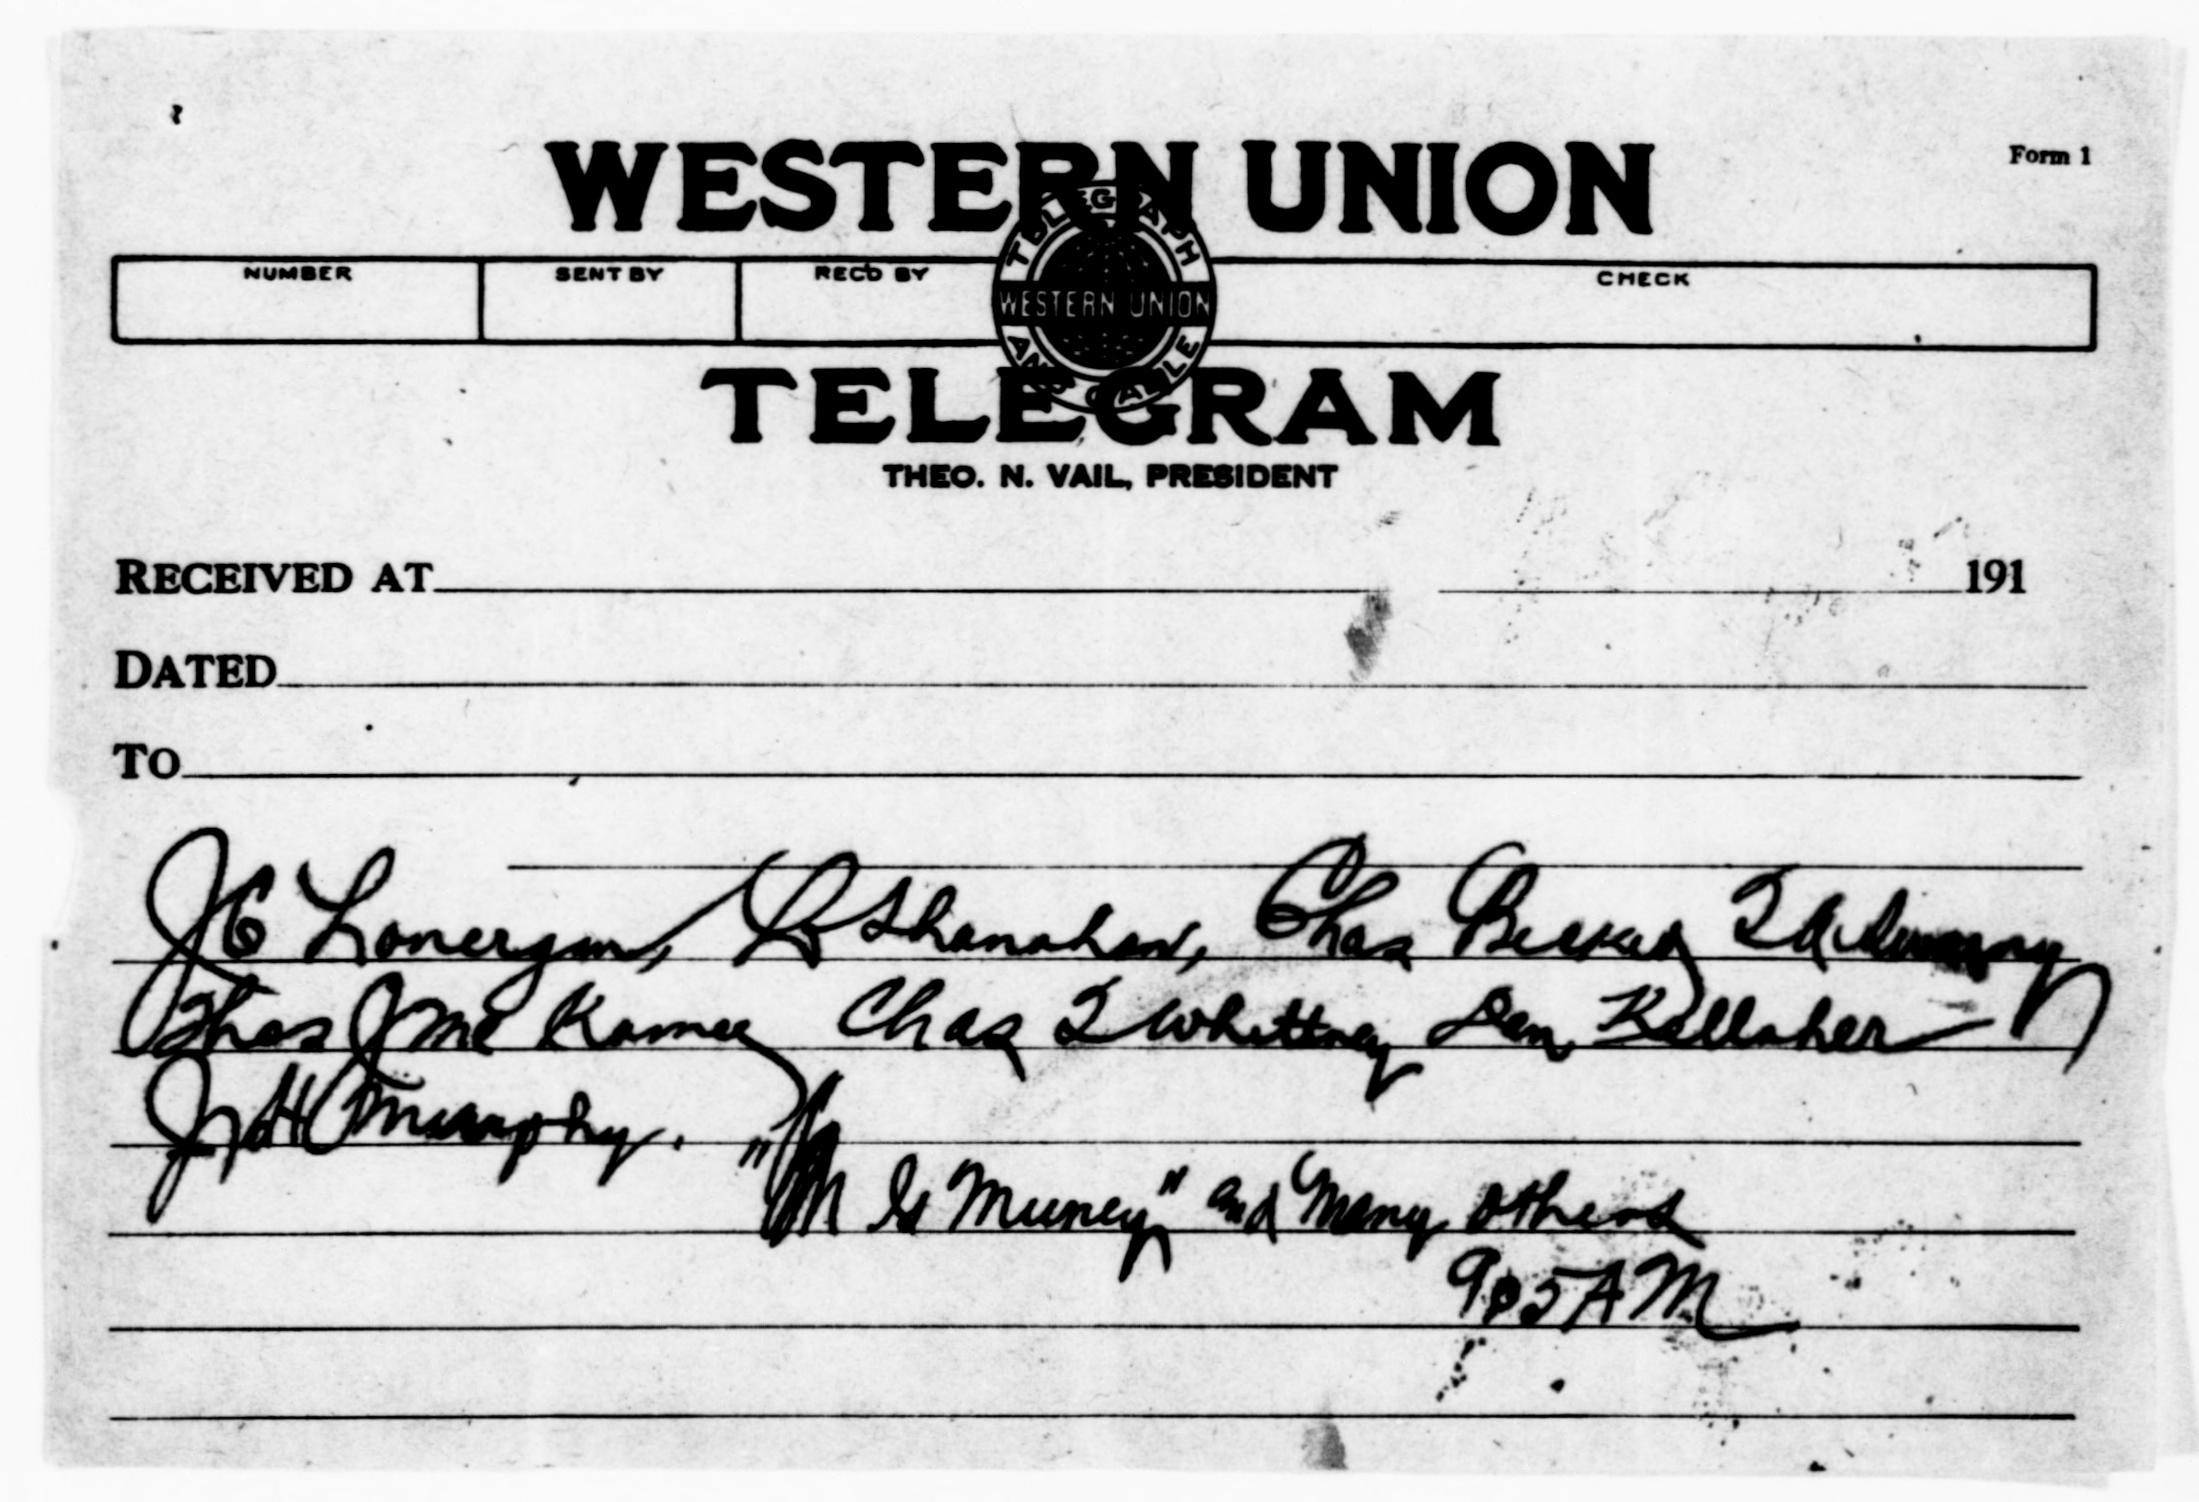 WESTERN UNION
Form 1
NUMBER SENT BY REC'D BY CHECK
TELEGRAPH AND CABLE
WESTERN UNION
TELEGRAM
THEO. N. VAIL, PRESIDENT
RECEIVED AT 191
DATED
TO
J C Lonergan, Shanahan, Chas Becker
Thos J Mc Kamey Chas Whittney Dan Kellaher
J H Murphy.
"M G Muney" and Many others
905 AM